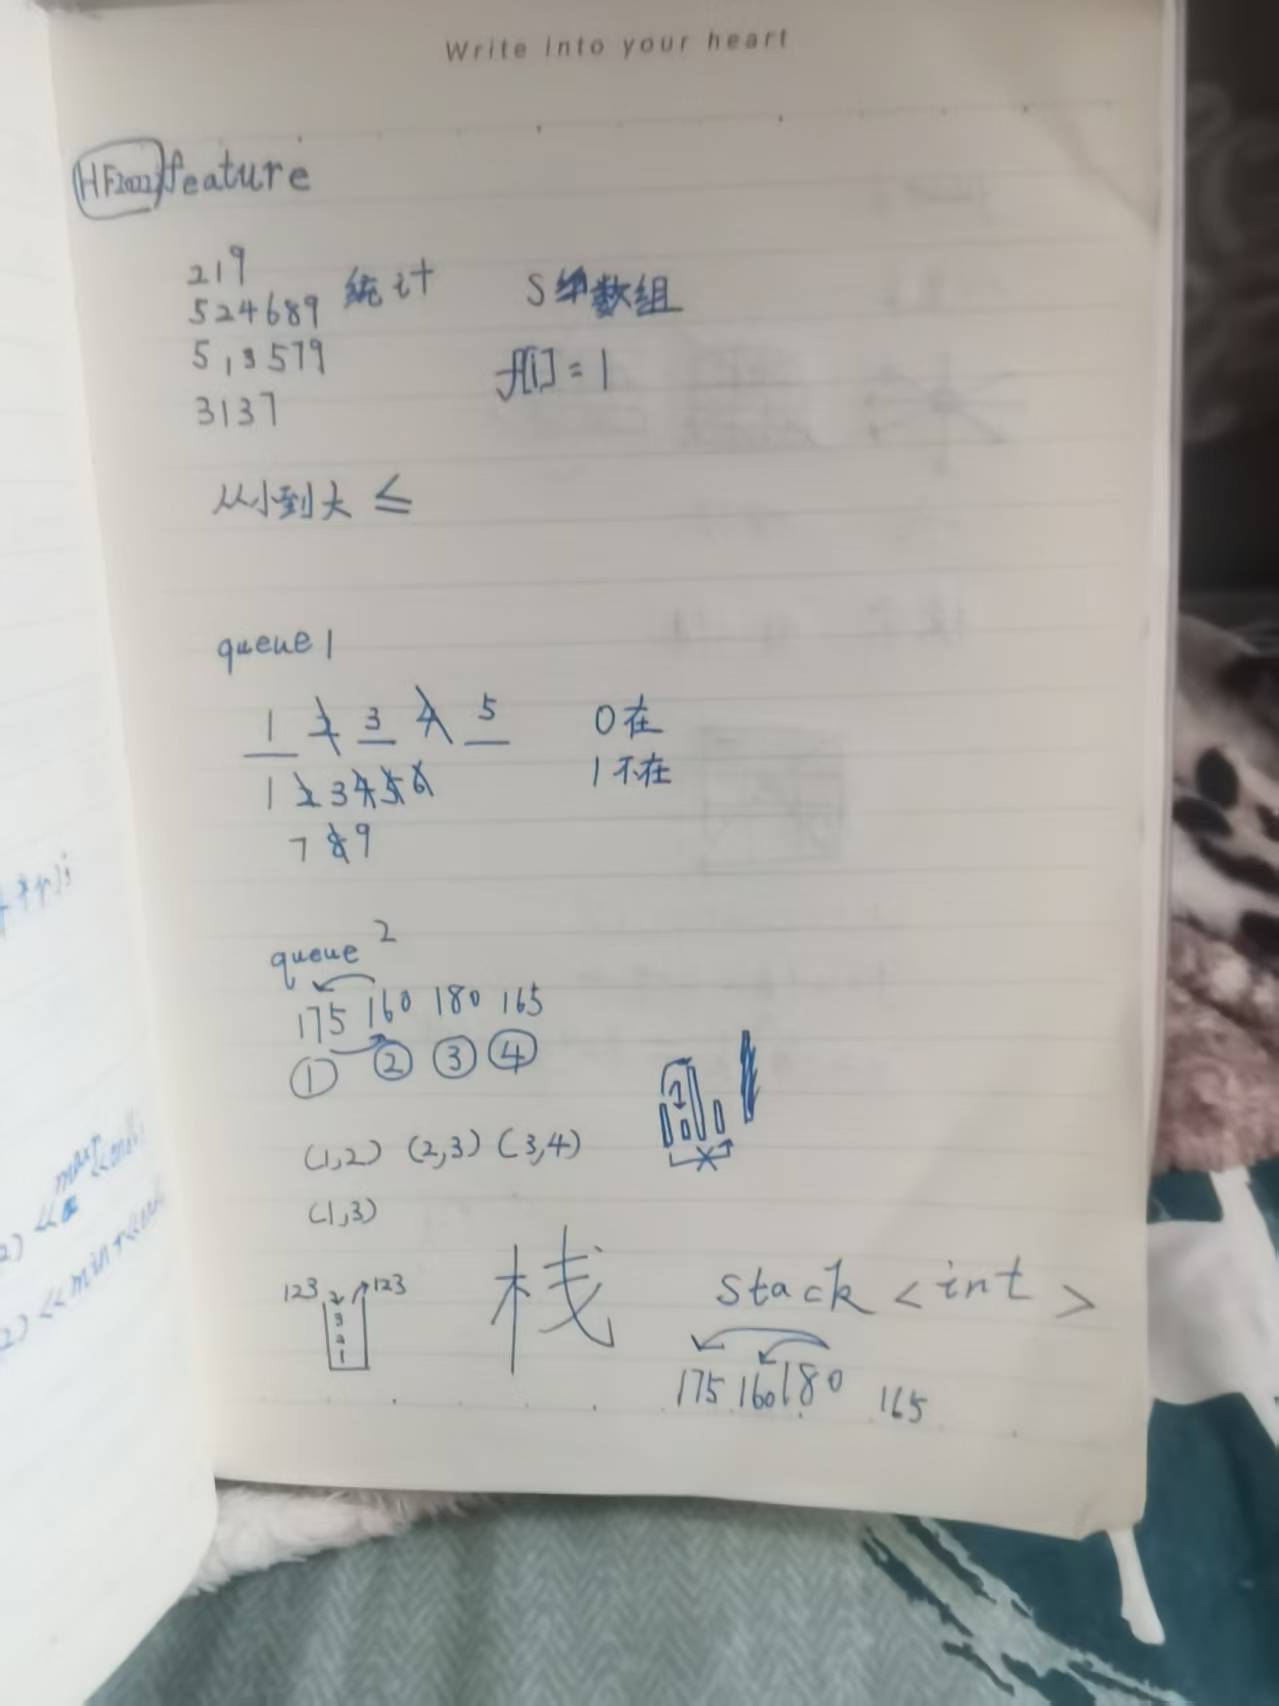 Write into your heart
HF2022 feature
219
524689 统计 S 数组
5,3579 f[i] = 1
3137
从小到大 ≤
queue 1
1 2 3 4 5 0在
1 2 3 4 5 6 1不在
7 8 9
queue 2
175 160 180 165
① ② ③ ④
(1,2) (2,3) (3,4)
(1,3)
123 123 栈 stack <int>
3
2
1
175 160 180 165